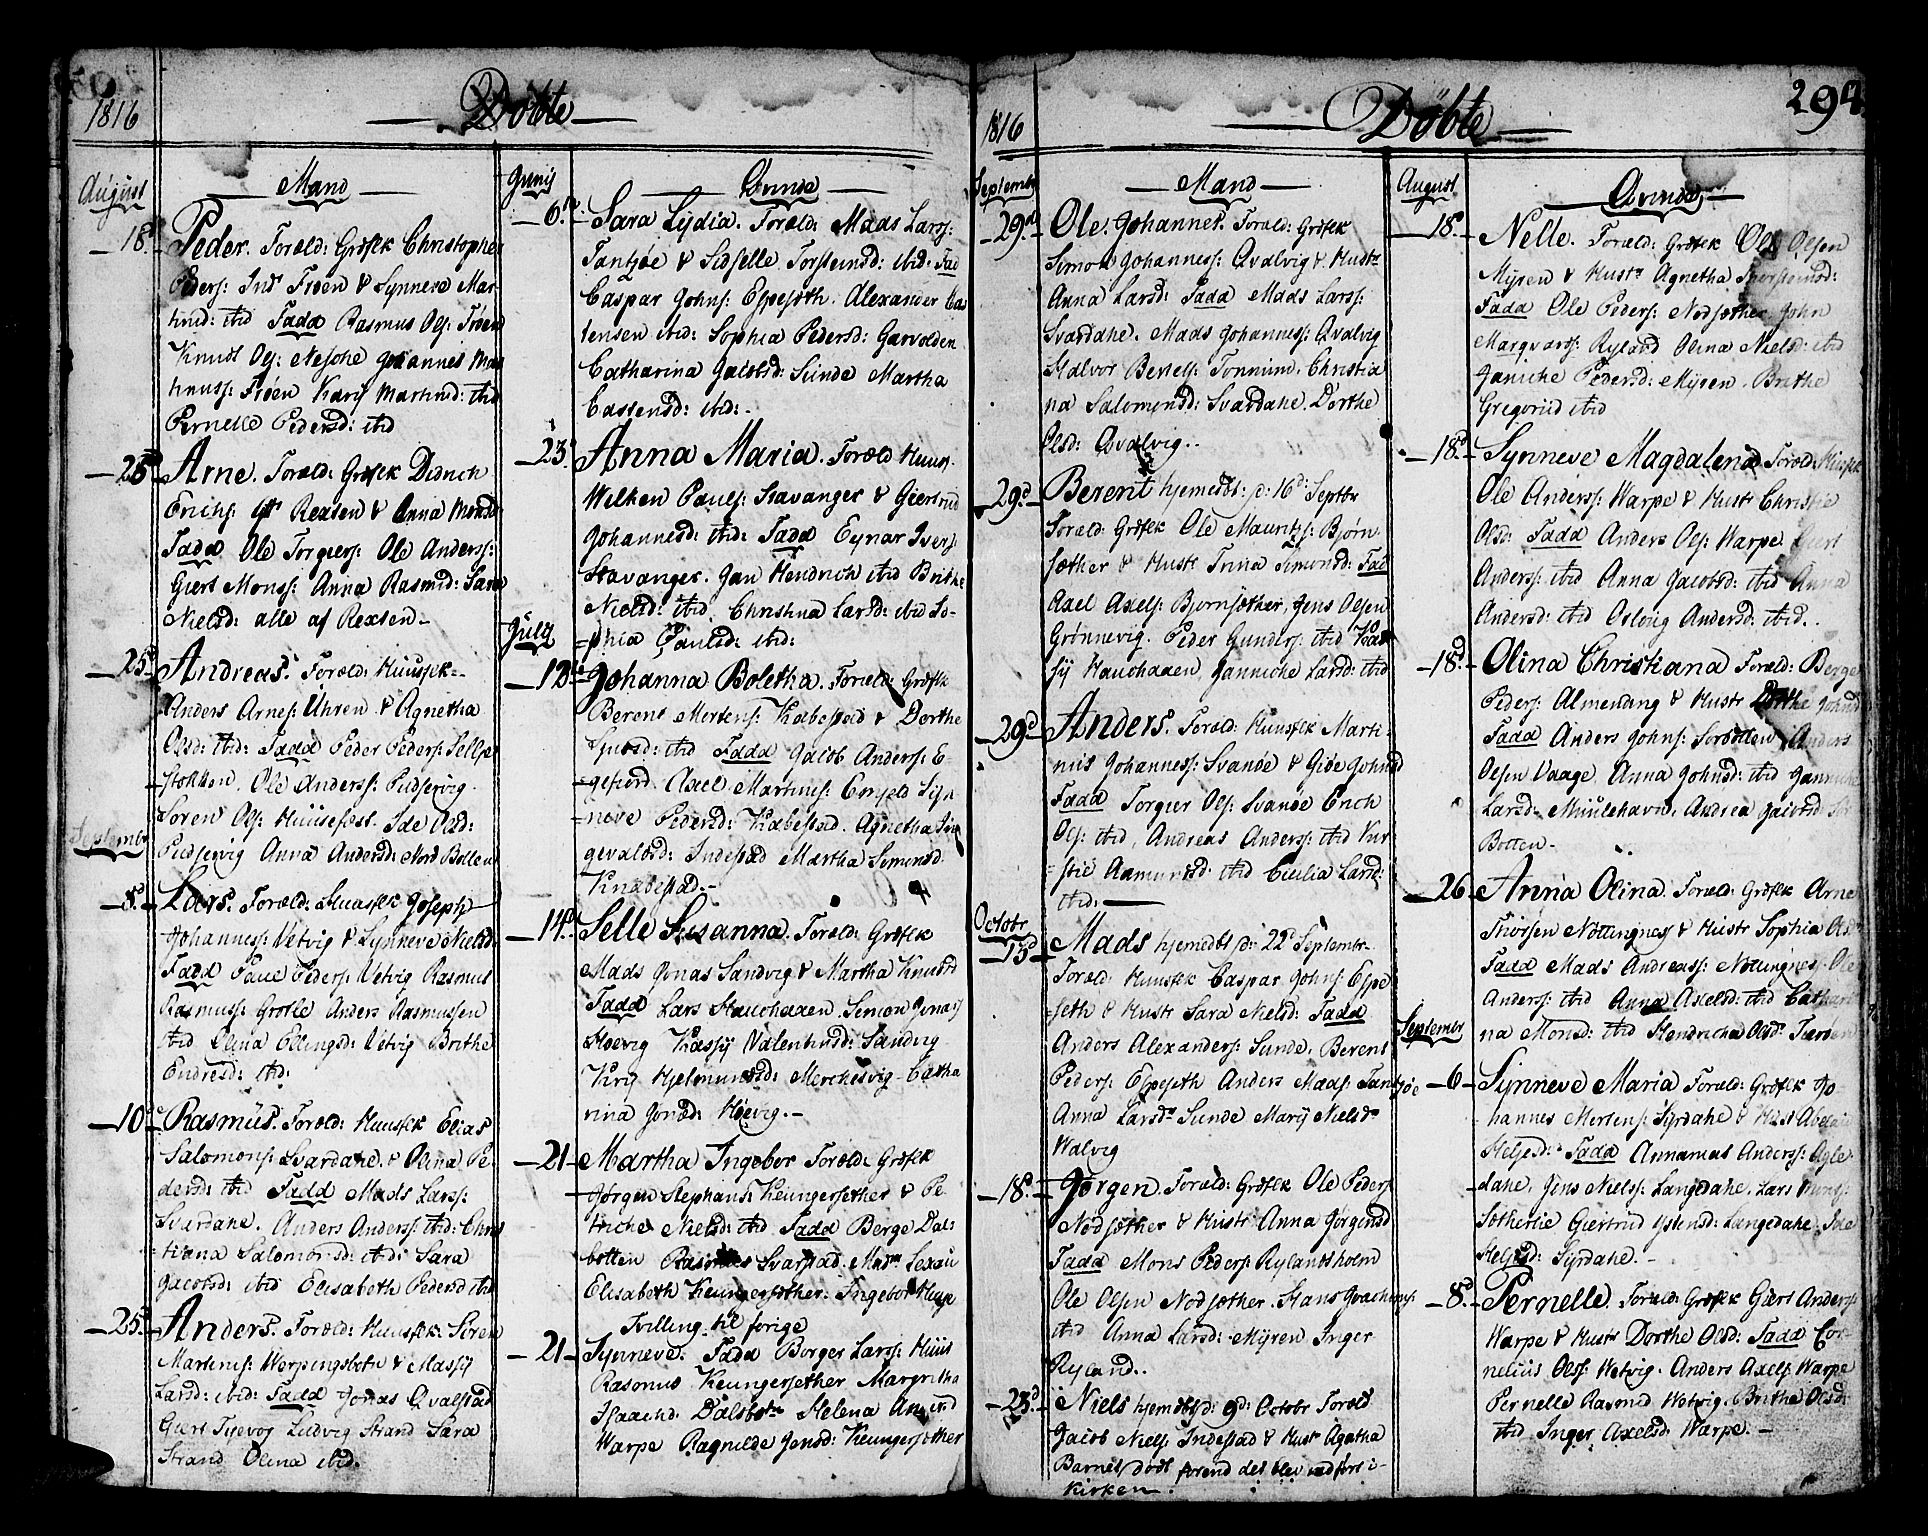 1816
Döbte
August
Mand
18d Peder. Foræld: Grdfk Christopher
Peders: Ind Frøen & Synneve Mar-
hnid: ibid Fadd Rasmus Ols: Frøen
Knudt Ols: Nesøhe Johannes Mar
hnuss: Frøen Kary Martnid: ibid
Pernelle Pedersd: ibid
25d Arne. Foræld: Grdfk Didrich
Erichs: Rexsen & Anna Monsd
Fadd Ole Torgiers: Ole Anderss:
Giert Monss: Anna Rasmid: Sara
Nielsd: alle af Rexsen
25d Andreas. Foræld: Huusfk
Anders Arnes: Uhren & Agnetha
Olsd: ibid: Fadd Peder Peders: Selljes
stokken. Ole Anderss: Pidsevig
Søren Ols: Huusefest. Ide Olsd:
Pidsevig Anna Andersd: Nord Botten
Septembr
8d Lars. Foræld: Huusfk Joseph
Johanness: Vetvig & Synneve Nielsd:
Fadd Paul Peders: Vetvig Rasmus
Rasmuss: Grotle Anders Rasmussen
ibid Elina Ellingsd: Vetvig Brithe
Endresd: ibid:
10d Rasmus. Foræld: Huusfk Elias
Salomons: Svardahl & Olina Pe-
dersd: ibid Fadd Mads Larss:
Svardahl. Anders Anderss: ibid: Chris
tiana Salomonsd: ibid: Sara
Jacobsd: ibid Elisabeth Pedersd ibid
25d Anders. Foræld: Huusfk: Søren
Martens: Werpingsbotn & Massij
Larsd: ibid: Fadd Jonas Qvalstad
Giert Ludvig Strand Sara
Strand Olina ibid.
Junij
Qvinde
6d Sara Lydia. Foræld: Mads Larss:
Tansøe & Sidselle Torsteinsd: ibid: Fad
Caspar Johns: Espeseth. Alexander Cas
tensen ibid: Sophia Pedersd: Garvolden
Catharina Jacobsd: Sunde Martha
Castensd: ibid:
23d Anna Maria. Foræld Huus
Wilken Pauls: Stavanger & Giertrud
Johannesd: ibid: Fadd Eynar Ivers
Stavanger. Jan Hendrich ibid Brithe
Nielsd: ibid. Christina Larsd: ibid So-
phia Paulsd: ibid:
Julij
12d Johanna Boletha. Foræld: Grdfk
Berent Mertens: Knabestad & Dorthe
Siursd: ibid Fadd Jacob Anderss: E-
gefiord. Axel Martnus: Sijn
neve Pedersd: Knabestad. Agnetha In
gevalsd: Indestad Martha Simonsd
Knabestad.
14d Selle Susanna. Foræld: Grdfk
Mads Jonas Sandvig & Martha Knudsd
Fadd Lars Stauchaaen Simon Jonas
Hoevig Massij Valentnsd: Sandvig
Kirs Hjelmundsd: Merchesvig Catha
rina Jonsd: Høevig.
21 Martha Ingebor Foræld: Grdfk
Jørgen Stephans: Keungersether & Pe
triche Nielsd: ibid Fadd Berge Dals
botten Rasmus Svarstad. Mads Lexau
Elisabeth Keungersether. Ingebor Huse
Tvilling til forige
21 Synneve. Fadd Borger Larss: Huus
Rasmus Keungersether Margretha
Isaachd. Dalsbotn Helena Anersd
Warpe Ragnilde Jensd: Keungersether
1816
Döbte
294
Septembr
Mand
29d Ole Johannes. Foræld: Grdfk
Simon Johanness: Qvalvig & Hustr
Anna Larsd: Fadd Mads Larss:
Svardahl. Mads Johanness: Qvalvig
Halvor Bentss: Tonnum. Christia
na Salomonsd: Svardahl. Dorthe
Olsd: Qvalvig.
29d Berent hjemedbt: d: 16d Septbr
Foræld: Grdfk Ole Mauritzs: Bjørn
sether & Hustr Trina Simonsd: Fad
Axel Axels: Bjornsether, Jens Olsen
Grønnevig. Peder Gunders: ibid Kas
sij Hauchaaen Jannicke Larsd: ibid
29d Anders. Foræld: Huusfk Marti-
nus Johanness: Svanøe & Gide Johnsd
Fadd Torgier Ols: Svanøe Erich
Ols: ibid, Andreas Anderss: ibid Kir
stie Aamundsd: ibid Cecilia Larsd:
ibid:
Octobr
13d Mads hjemedbt d: 22d Septembr
Foræld: Huusfk Caspar Johns: Espe
seth & Hustr Sara Nielsd: Fadd
Anders Alexanders: Sunde. Berent
Peders: Espeseth Anders Mads: Tansøe
Anna Larsd: Sunde Marij Nielsdr
Walvig
18d Jørgen. Foræld: Grdfk Ole Peders
Nodsether & Hustr Anna Jørgensd
Fadd Mons Peders Rylandsholm
Ole Olsen Nodsether. Hans Joachims:
ibid Anna Larsd: Myren Inger
Ryland.
23d Niels hjemedbt d: 9d: Octobr Foræld
Jacob Niels: Indestad & Hustr Agatha
Barnet død forend det blev indført i
kirken.
August
Qvinde
18d Nelle. Foræld: Grdfk Ole Olsen
Myren & Hustr Agnetha Thorsteinsd:
Fadd Ole Peders: Nodsether John
Marqvards: Ryland Olina Nielsd: ibid
Janiche Pedersd: Myren. Brithe
Gregoriid ibid
18d Synneve Magdalena Foræld: Huusfk
Ole Anderss: Warpe & Hustr Christie
Olsd: Fadd Anders Ols: Warpe Giert
Anderss: ibid Anna Jacobsd: ibid Anna
Andersd: ibid Oslaug Andersd: ibid.
18d Olina Christiana Foræld: Berge
Peders: Almending & Hustr Dorthe Johnsd
Fadd Anders Johns: Sorbotten Anders
Olsen Vaage Anna Johnsd: ibid Jannicke
Larsd: Muulehavn. Andrea Jacobsd Sør
Botten
26 Anna Olina. Foræld: Grdfk Arne
Thorsen Nottingnes & Hustr Sophia Ols
Fadd Mads Andreass: Nottingnes. Ole
Anderss: ibid Anna Axelsd: ibid Cathari
na Monsd: ibid Hendricha Olsd:
Septembr
6 Synneve Maria Foræld: Grdfk Jo
hannes Mertens: Syrdahl & Hustr
Heljesd: Fadd Annamas Anderss: Ayle
dahl. Jens Niels: Langedahl. Lars Muns:
Sætherlie Giertrud Ystensd: Langedahl. Ide
Heljesd: Syrdahl.
8d Pernelle. Foræld: Grdfk Giert Anders:
Warpe & Hustr Dorthe Olsd: Fadd Cor-
nelius Olss: Wetvig. Anders Axels: Warpe
Pernelle Rasmid Wetvig. Brithe Olsd:
ibid Inger Axelsd: Warpe.